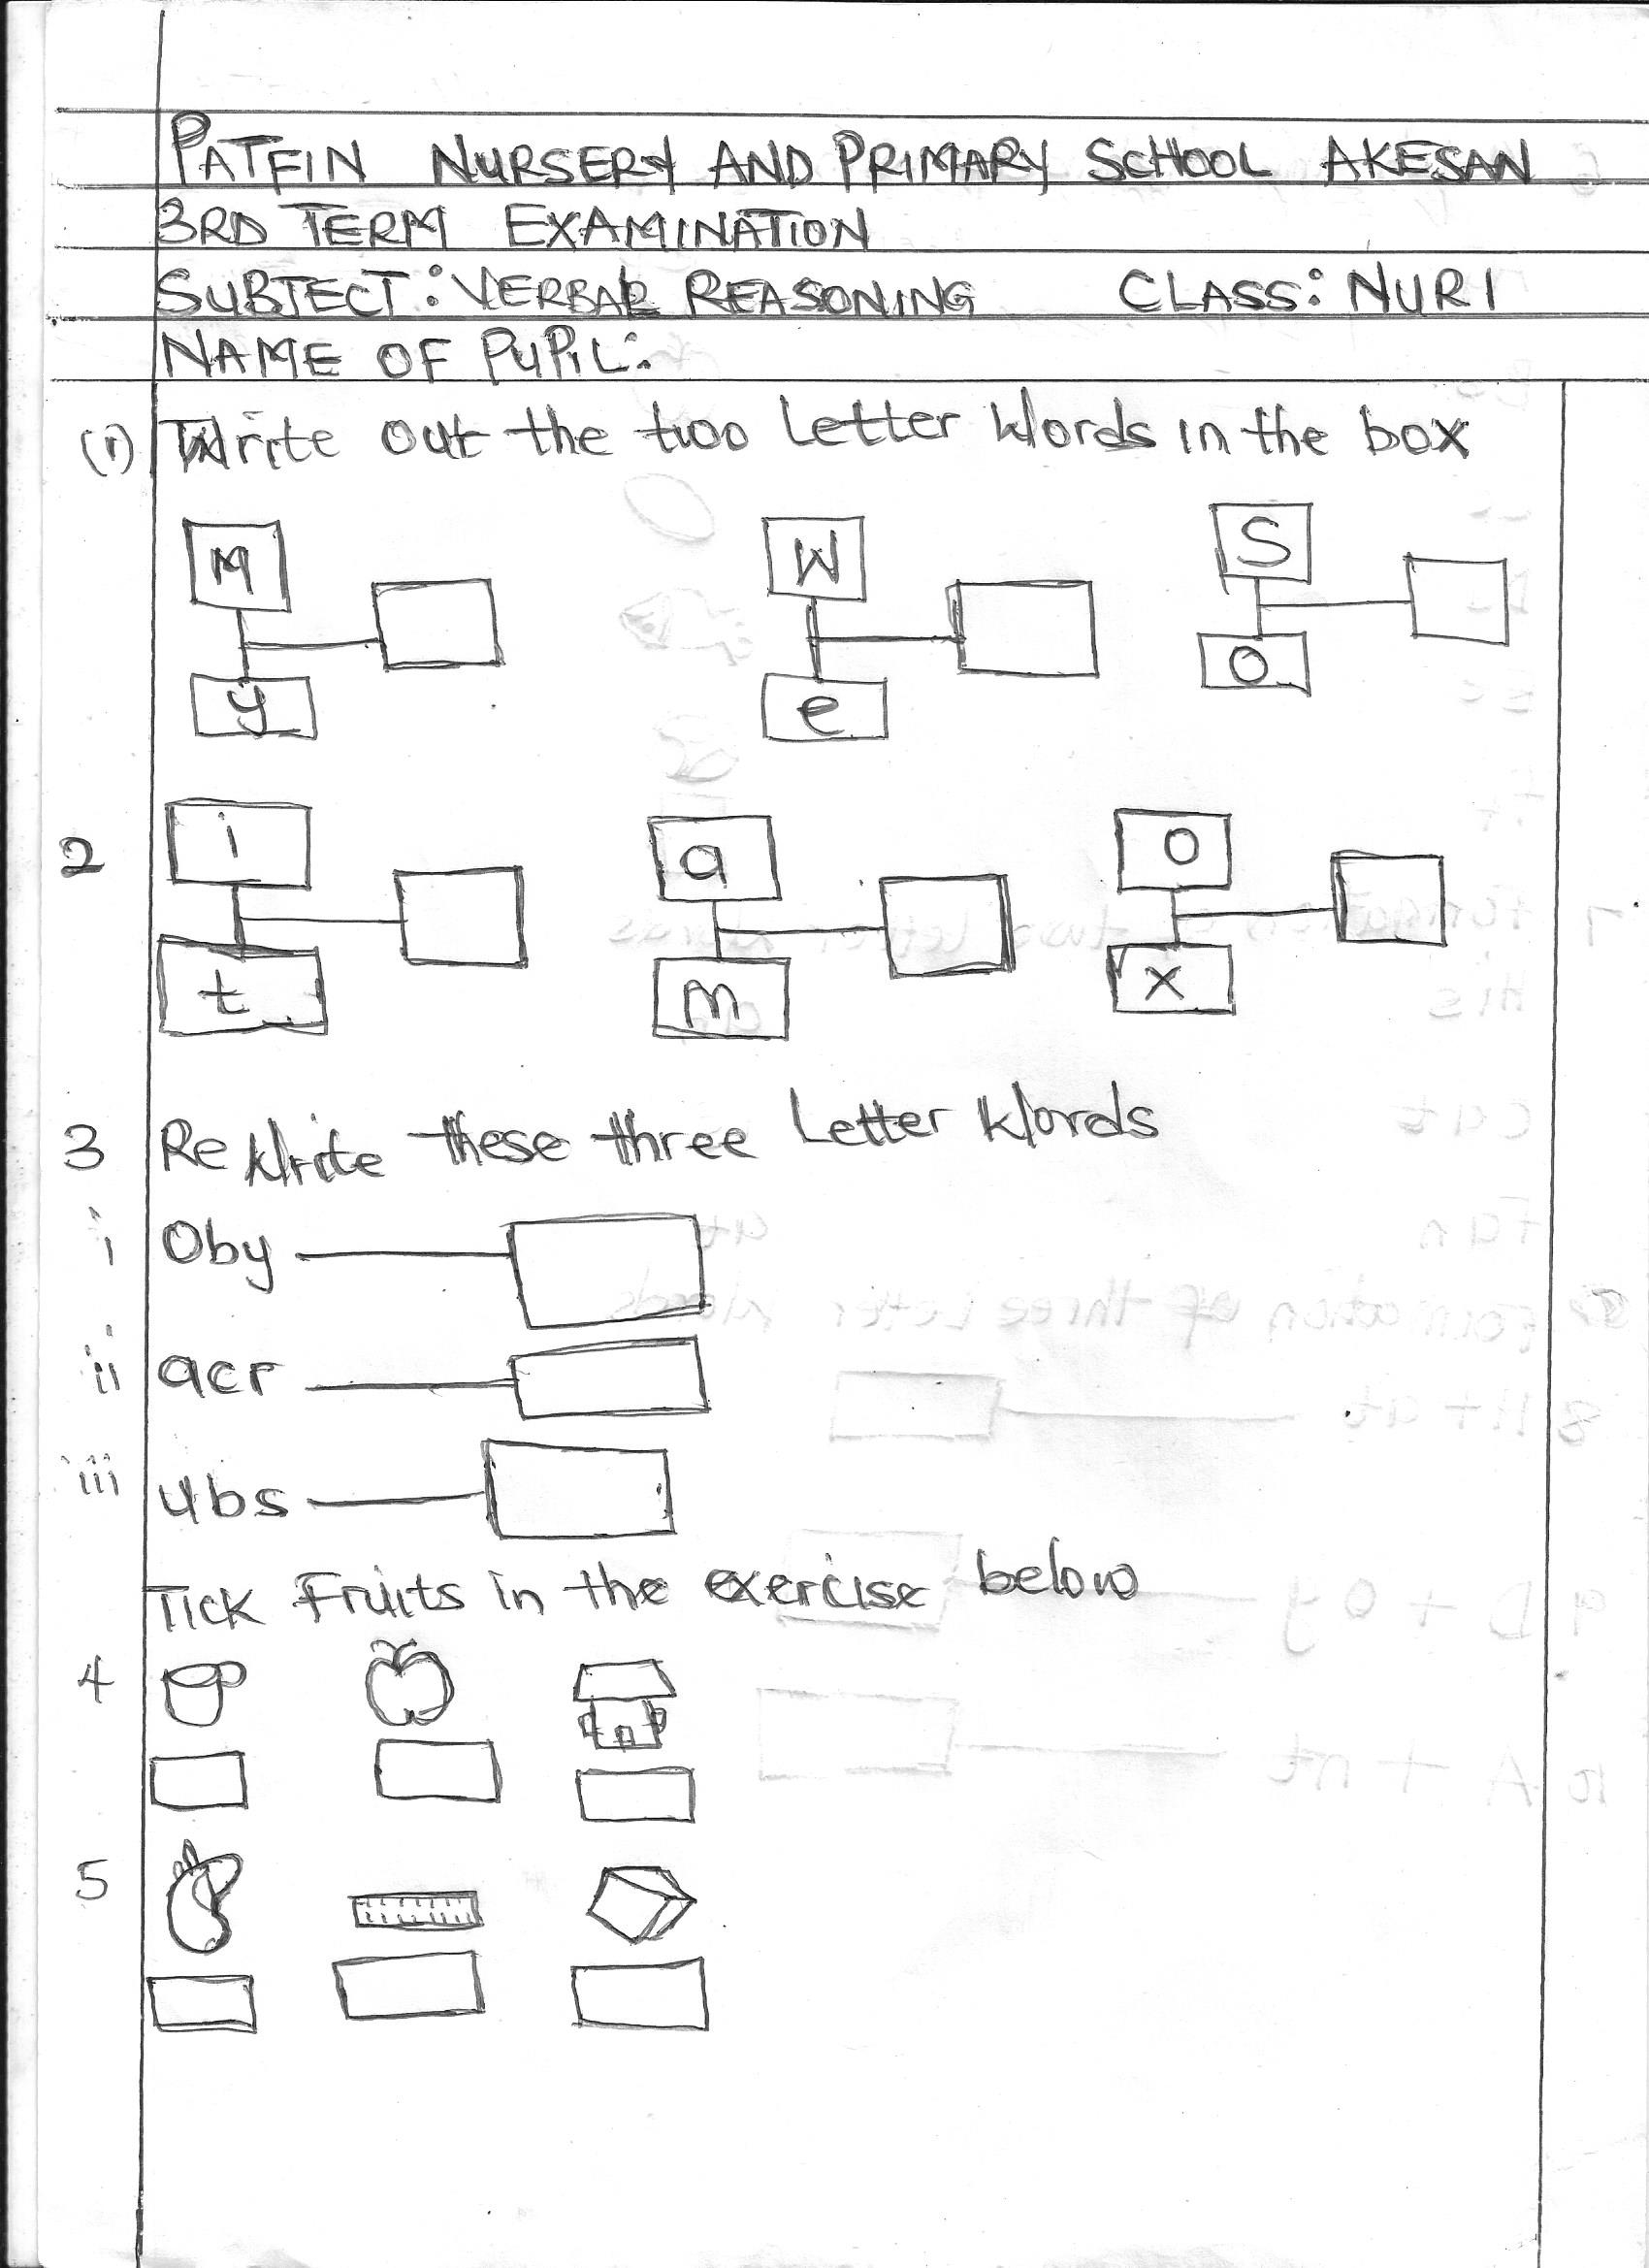 PATFIN NURSERY AND PRIMARY SCHOOL AKESAN
3RD TERM EXAMINATION
SUBJECT: VERBAL REASONING CLASS: NUR 1
NAME OF PUPIL:
(1) Write out the two Letter Words in the box
M W S
y e o
2 i a o
t m x
3 Re Write these three Letter Words
i Oby
ii acr
iii ubs
Tick Fruits in the exercise below
4
5